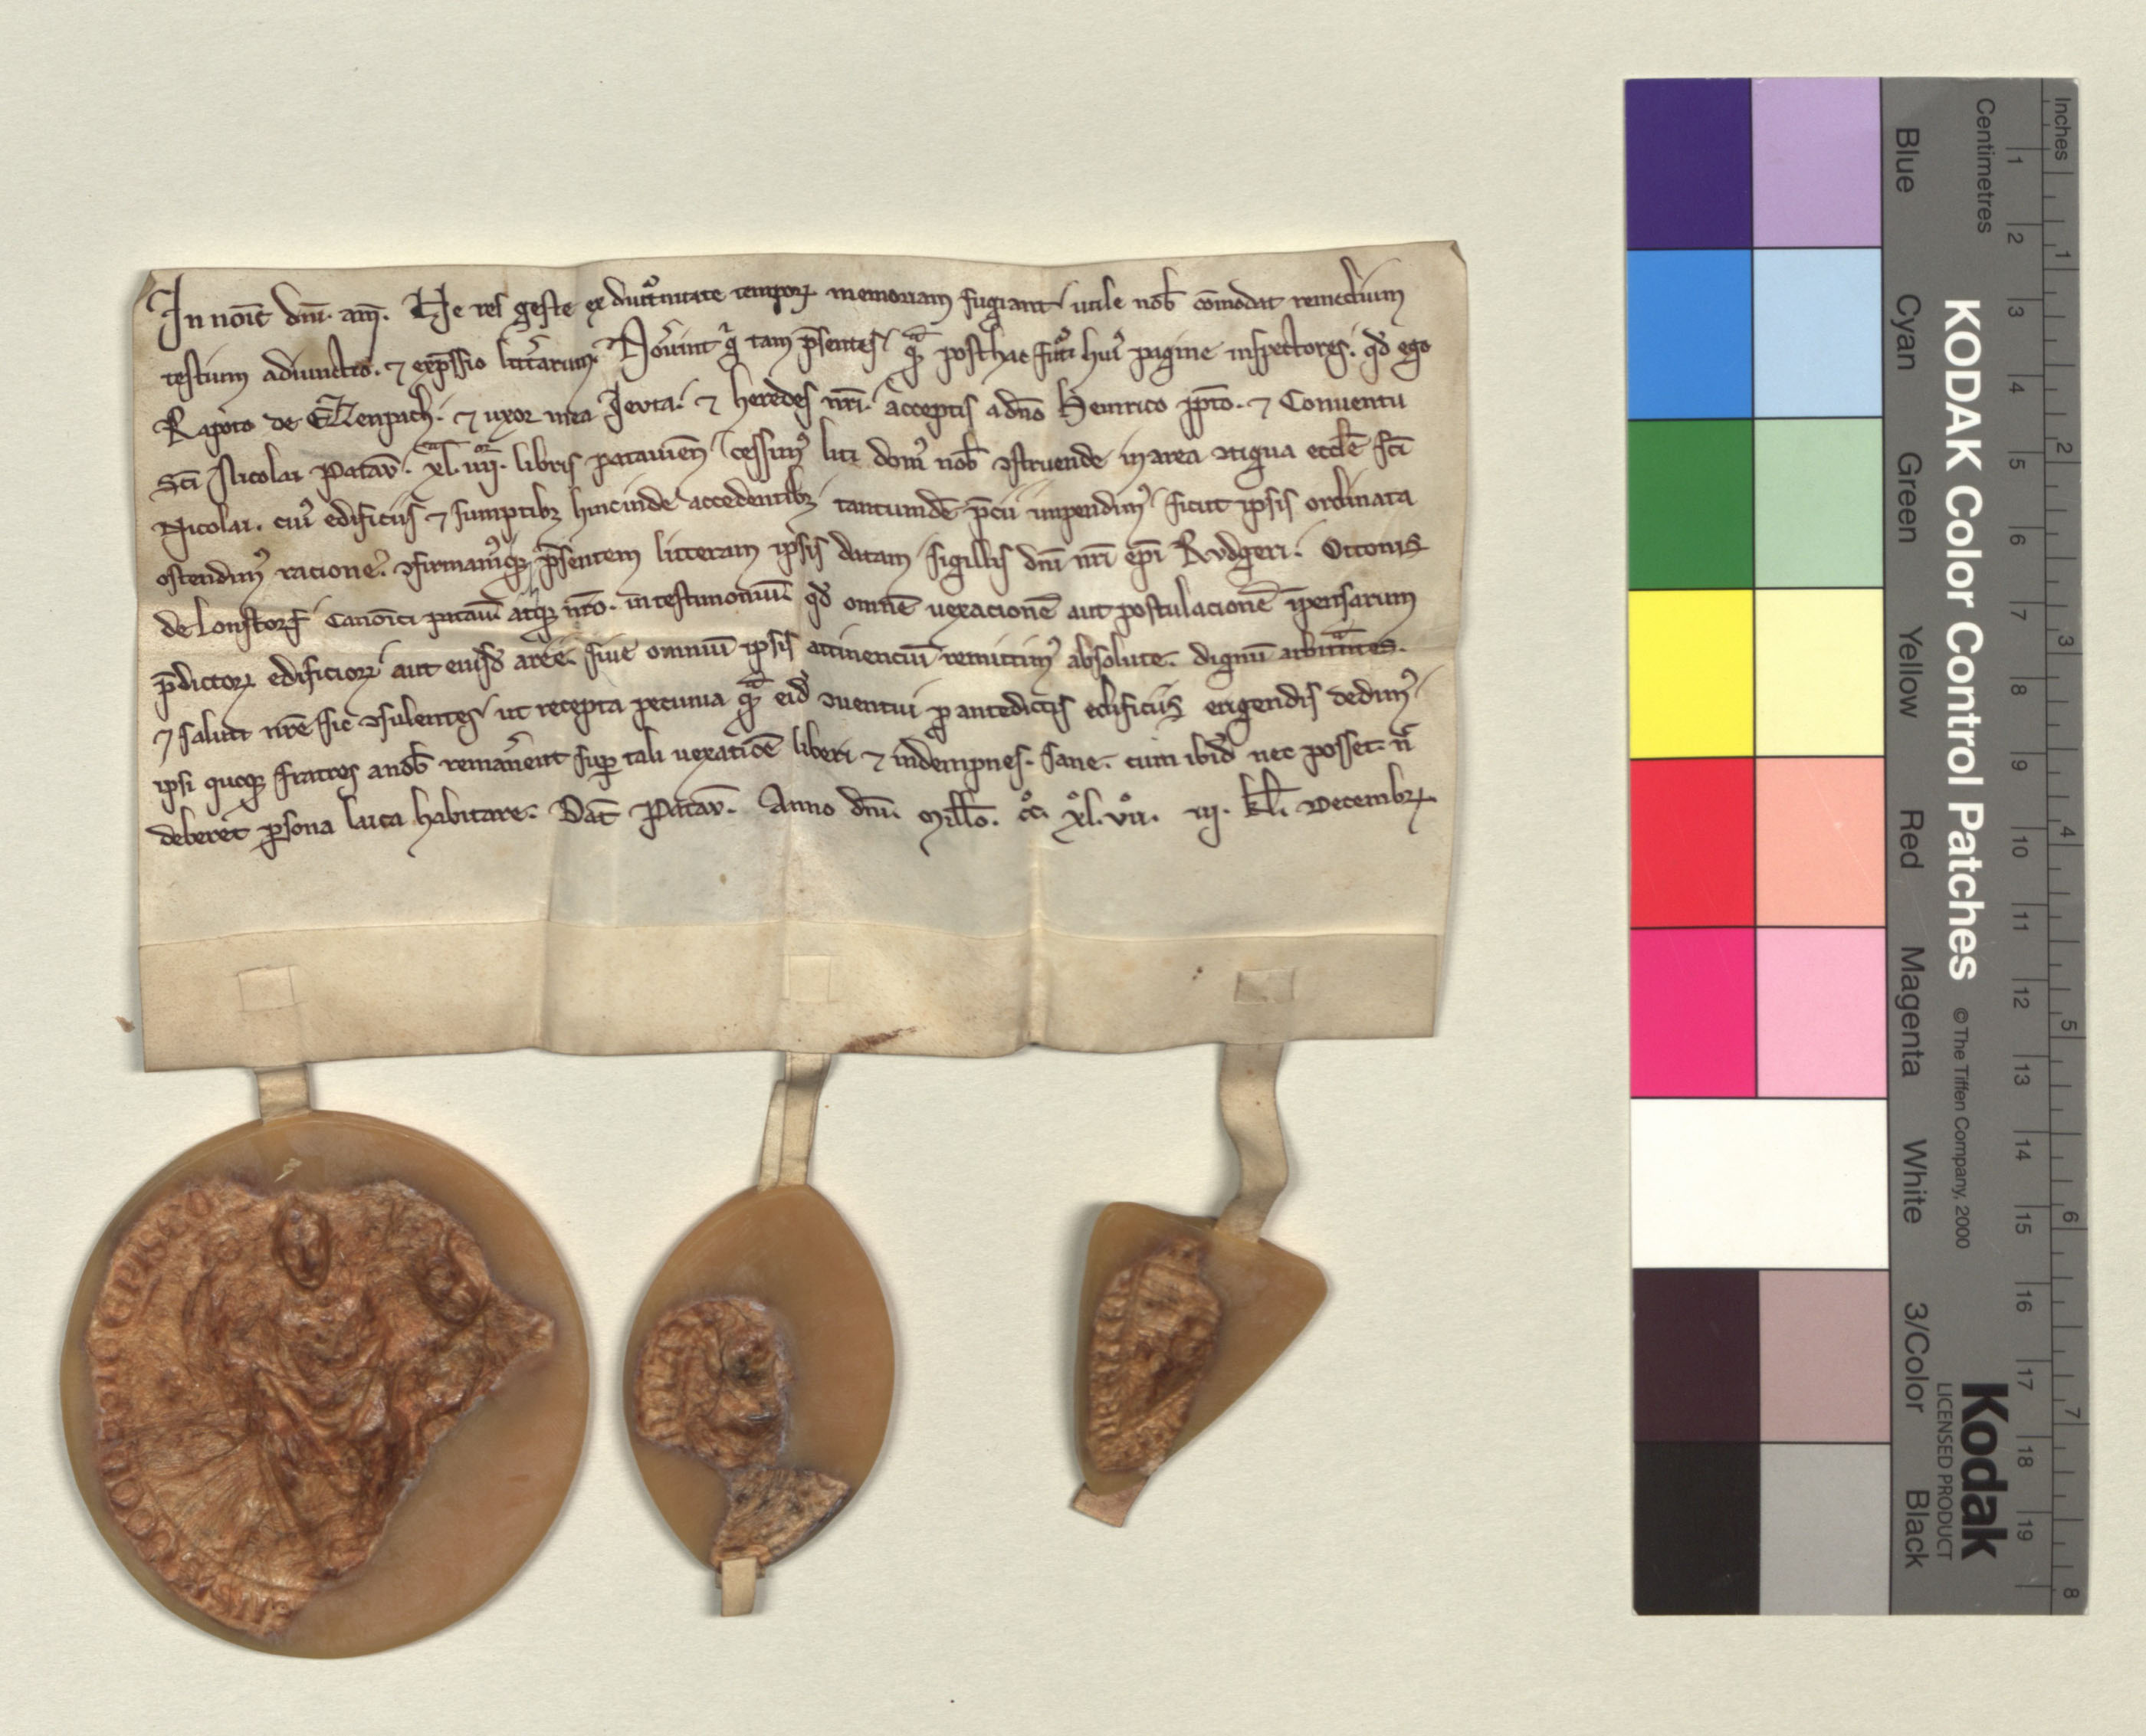 In noīe dn̄i. am̄. Ne res geste ex diut̾nitate temporꝝ memoriam fugiant utile nob̄ cōmodat remedium
testium adiunctio. ⁊ exp̄ssio litt̾arum. Nov̾int gͥ tam p̄sentes qᵃꝫ posthac futͥ huiꝰ pagine inspectores. qd̄ ego
Rapoto de Ekenpach. ⁊ uxor mea Jevta. ⁊ heredes nr̄i. acceptis a dn̄o Heinrico pp̄to. ⁊ Conventu
Sc̄i Nicolai Patav̄. xl. iiij. libris patavien̄ cessimꝰ liti domꝰ nob̄ ꝯstruende in area ꝯtigua eccl̄e sc̄i
Nicolai. cuiꝰ edificiis ⁊ sumptibꝫ hincinde accedentibꝫ tantundē p̄cii impendimꝰ sicut ipsis ordinata
ostendimꝰ racione. ꝯfirmamꝰqꝫ p̄sentem litteram ipsis datam sigillis dn̄i nr̄i ep̄i Rvdgeri. Ottonis
de Lonstorf Canoīci patavī atqꝫ nr̄o. in testimoniū. qd̄ omnē uexacionē aut postulacionē īpensarum
p̄dictorꝝ edificiorꝝ aut eiusd̄ aree. siue omniū ipsis attinenciū remittimꝰ absolute. dignū arbitᵃntes.
⁊ saluti nr̄e sic ꝯsulentes ut recepta pecunia qᵃꝫ eid̄ ꝯventui ꝓ antedictis edificiis erigendis dedimꝰ
ipsi quoqꝫ fratres a nob̄ reman̾ent suꝑ tali uexatiōe liberi ⁊ indempnes. sane. cum ibid̄ nec posset. n̄
deberet ꝑsona laica habitare. Dat̄ Patav̄. Anno dn̄i. Mill̄o. cͦc. xͦl. vͦii. iij. kl̄. Decembrꝝ
Inches
Centimetres
1 2 3 4 5 6 7 8 9 10 11 12 13 14 15 16 17 18 19
1 2 3 4 5 6 7 8
KODAK Color Control Patches
©The Tiffen Company, 2000
Kodak
LICENSED PRODUCT
Blue
Cyan
Green
Yellow
Red
Magenta
White
3/Color
Black